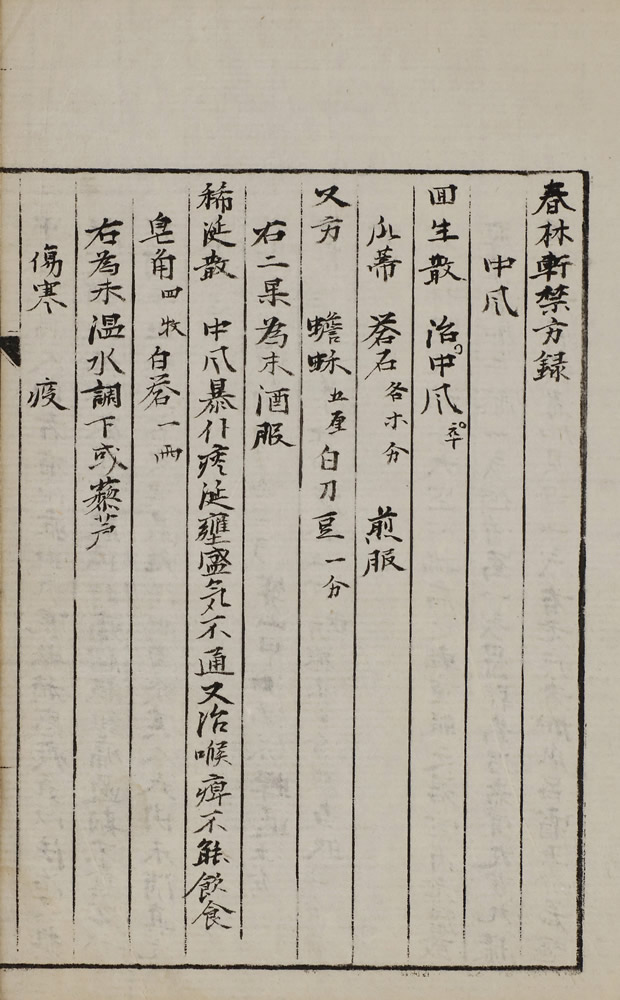 春林軒禁方録
中风
回生散 治中风
瓜蒂 各 分 煎服
又方 蟾酥 五厘 白刀豆 一分
右二 為末酒服
稀涎散 中风暴仆痰涎壅盛気不通又治喉痺不能飲食
皂角 四枚 白礬 一両
右為末温水調下或藜芦
傷寒 疫